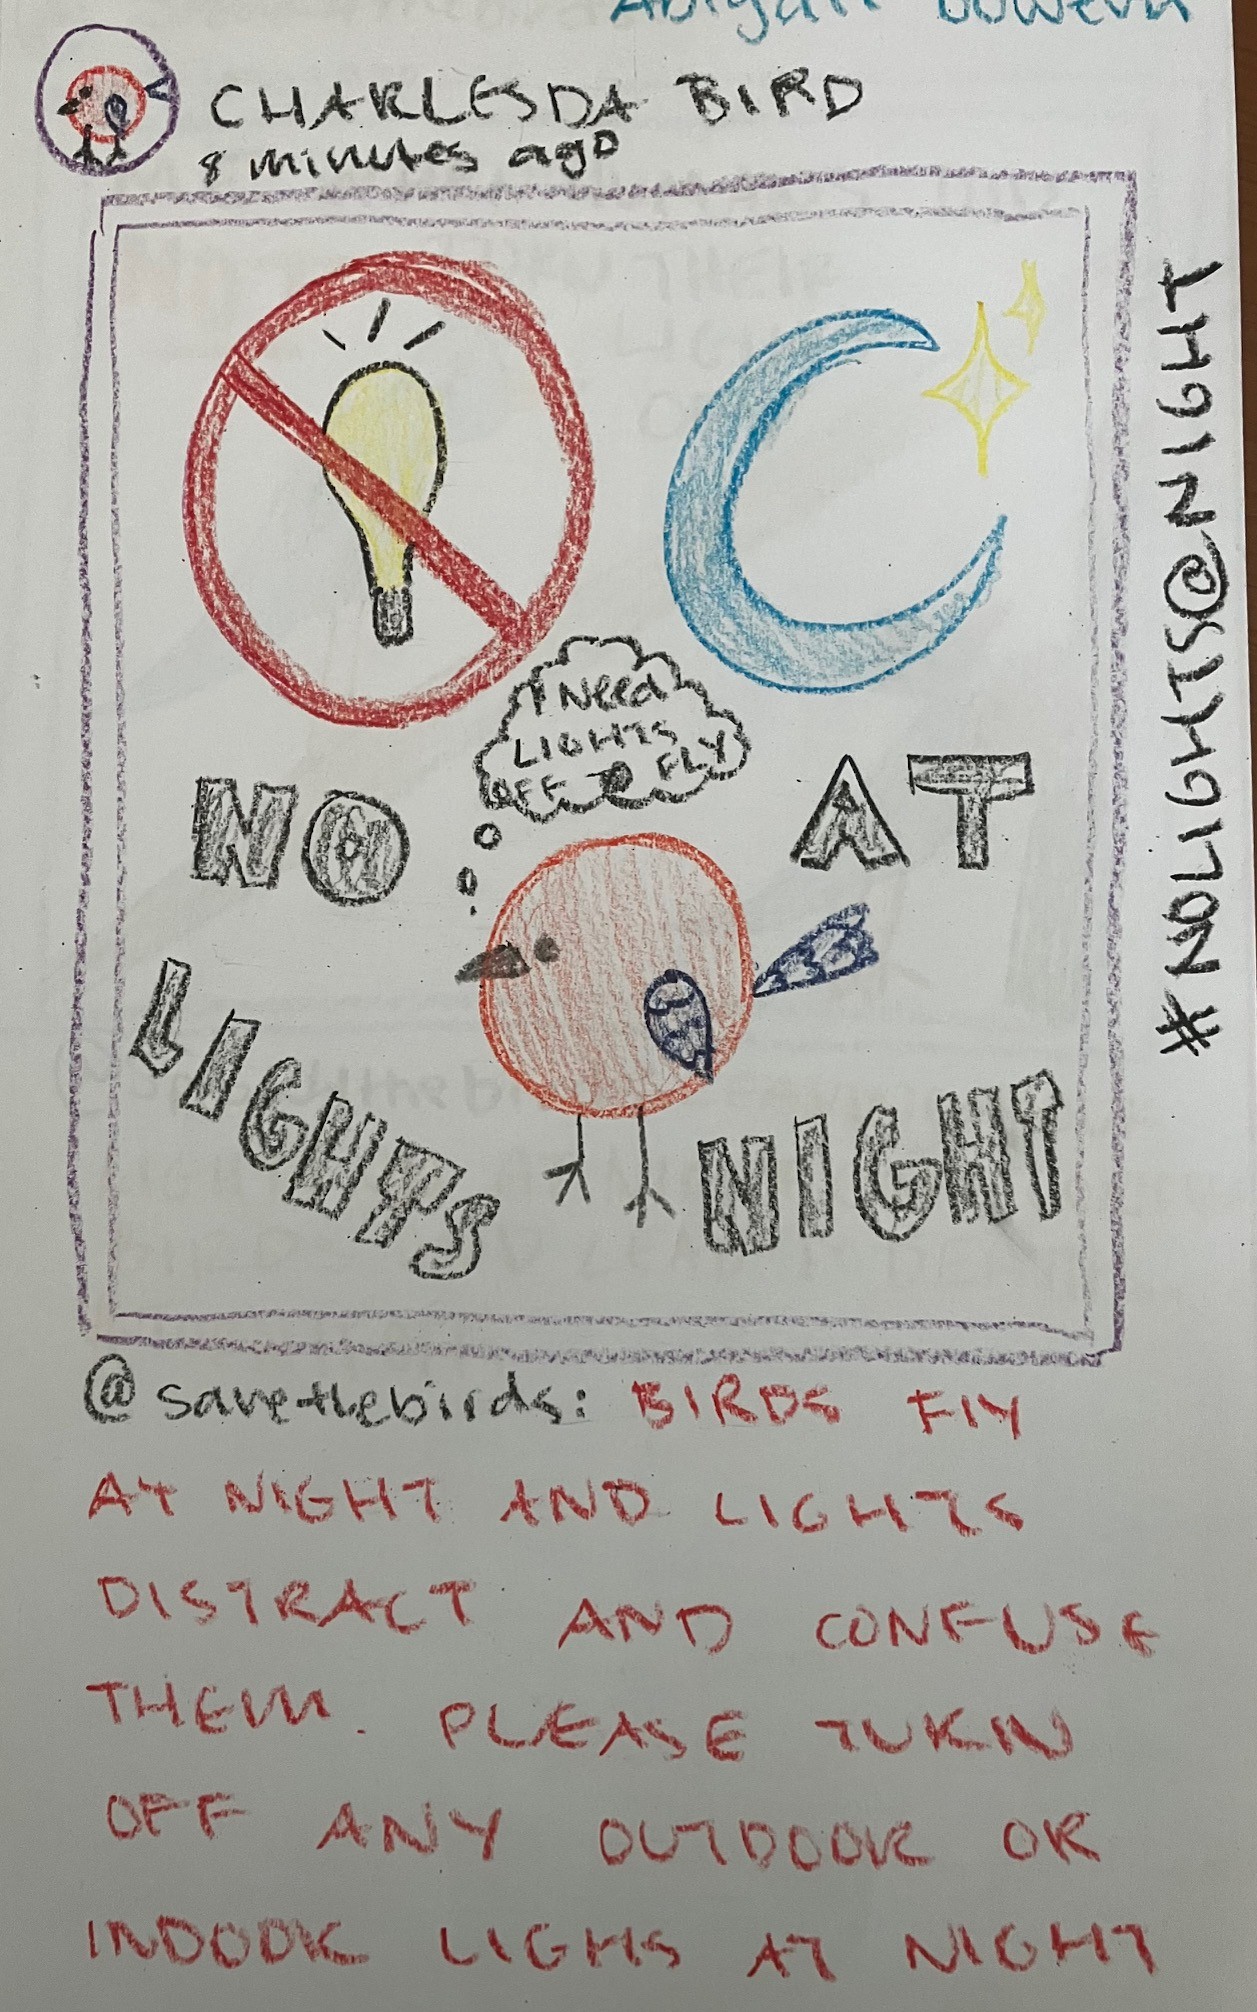 Abigail
CHARLESDA BIRD
8 minutes ago
I Need
LIGHTS
OFF 2 FLY
NO
AT
LIGHTS
NIGHT
#NOLIGHTS@NIGHT
@savethebirds: BIRDS FLY
AT NIGHT AND LIGHTS
DISTRACT AND CONFUSE
THEM. PLEASE TURN
OFF ANY OUTDOOR OR
INDOOR LIGHS AT NIGHT